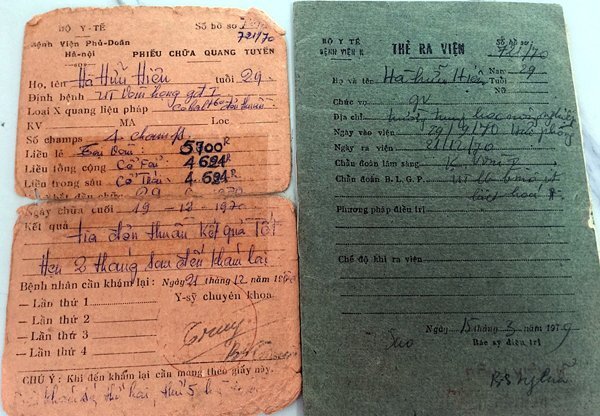 BỘ Y-TẾ
Số hồ sơ
Bệnh Viện Phủ-Doãn
721/70
Hà-nội
PHIẾU CHỮA QUANG TUYẾN
Họ, tên Hà Hữu Hiền tuổi 29
Định bệnh UT Vòm họng gđ I
Loại X quang liệu pháp Cobalt 60 đơn thuần
KV MA Loc
Số champs 4 champs
Liều lẻ 5700R
Liều tổng cộng Cổ Fải 4684R
Liều trong sâu Cổ Trái 4.684R
Ngày chữa cuối 19-12-1970
Kết quả
tia đơn thuần kết quả Tốt
Hẹn 2 tháng sau đến khám lại
Bệnh nhân cần khám lại: Ngày 21 tháng 12 năm 1970
— Lần thứ 1
Y-sỹ chuyên khoa
— Lần thứ 2
— Lần thứ 3
— Lần thứ 4
CHÚ Ý: Khi đến khám lại cần mang theo giấy này.
BỘ Y TẾ
BỆNH VIỆN K
THẺ RA VIỆN
Số hồ sơ
721/70
Họ và tên Hà Hữu Hiền Nam 29 Tuổi
Nữ
Chức vụ gv
Địa chỉ trường trung học nông nghiệp
Ngày vào viện 29/9/70 Hải phòng
Ngày ra viện 21/12/70
Chẩn đoán lâm sàng K Vòm I
Chẩn đoán B.L.G.P.
Phương pháp điều trị
Chế độ khi ra viện
Ngày 15 tháng 5 năm 1979
Sao
Bác sỹ điều trị
BS Nghĩa